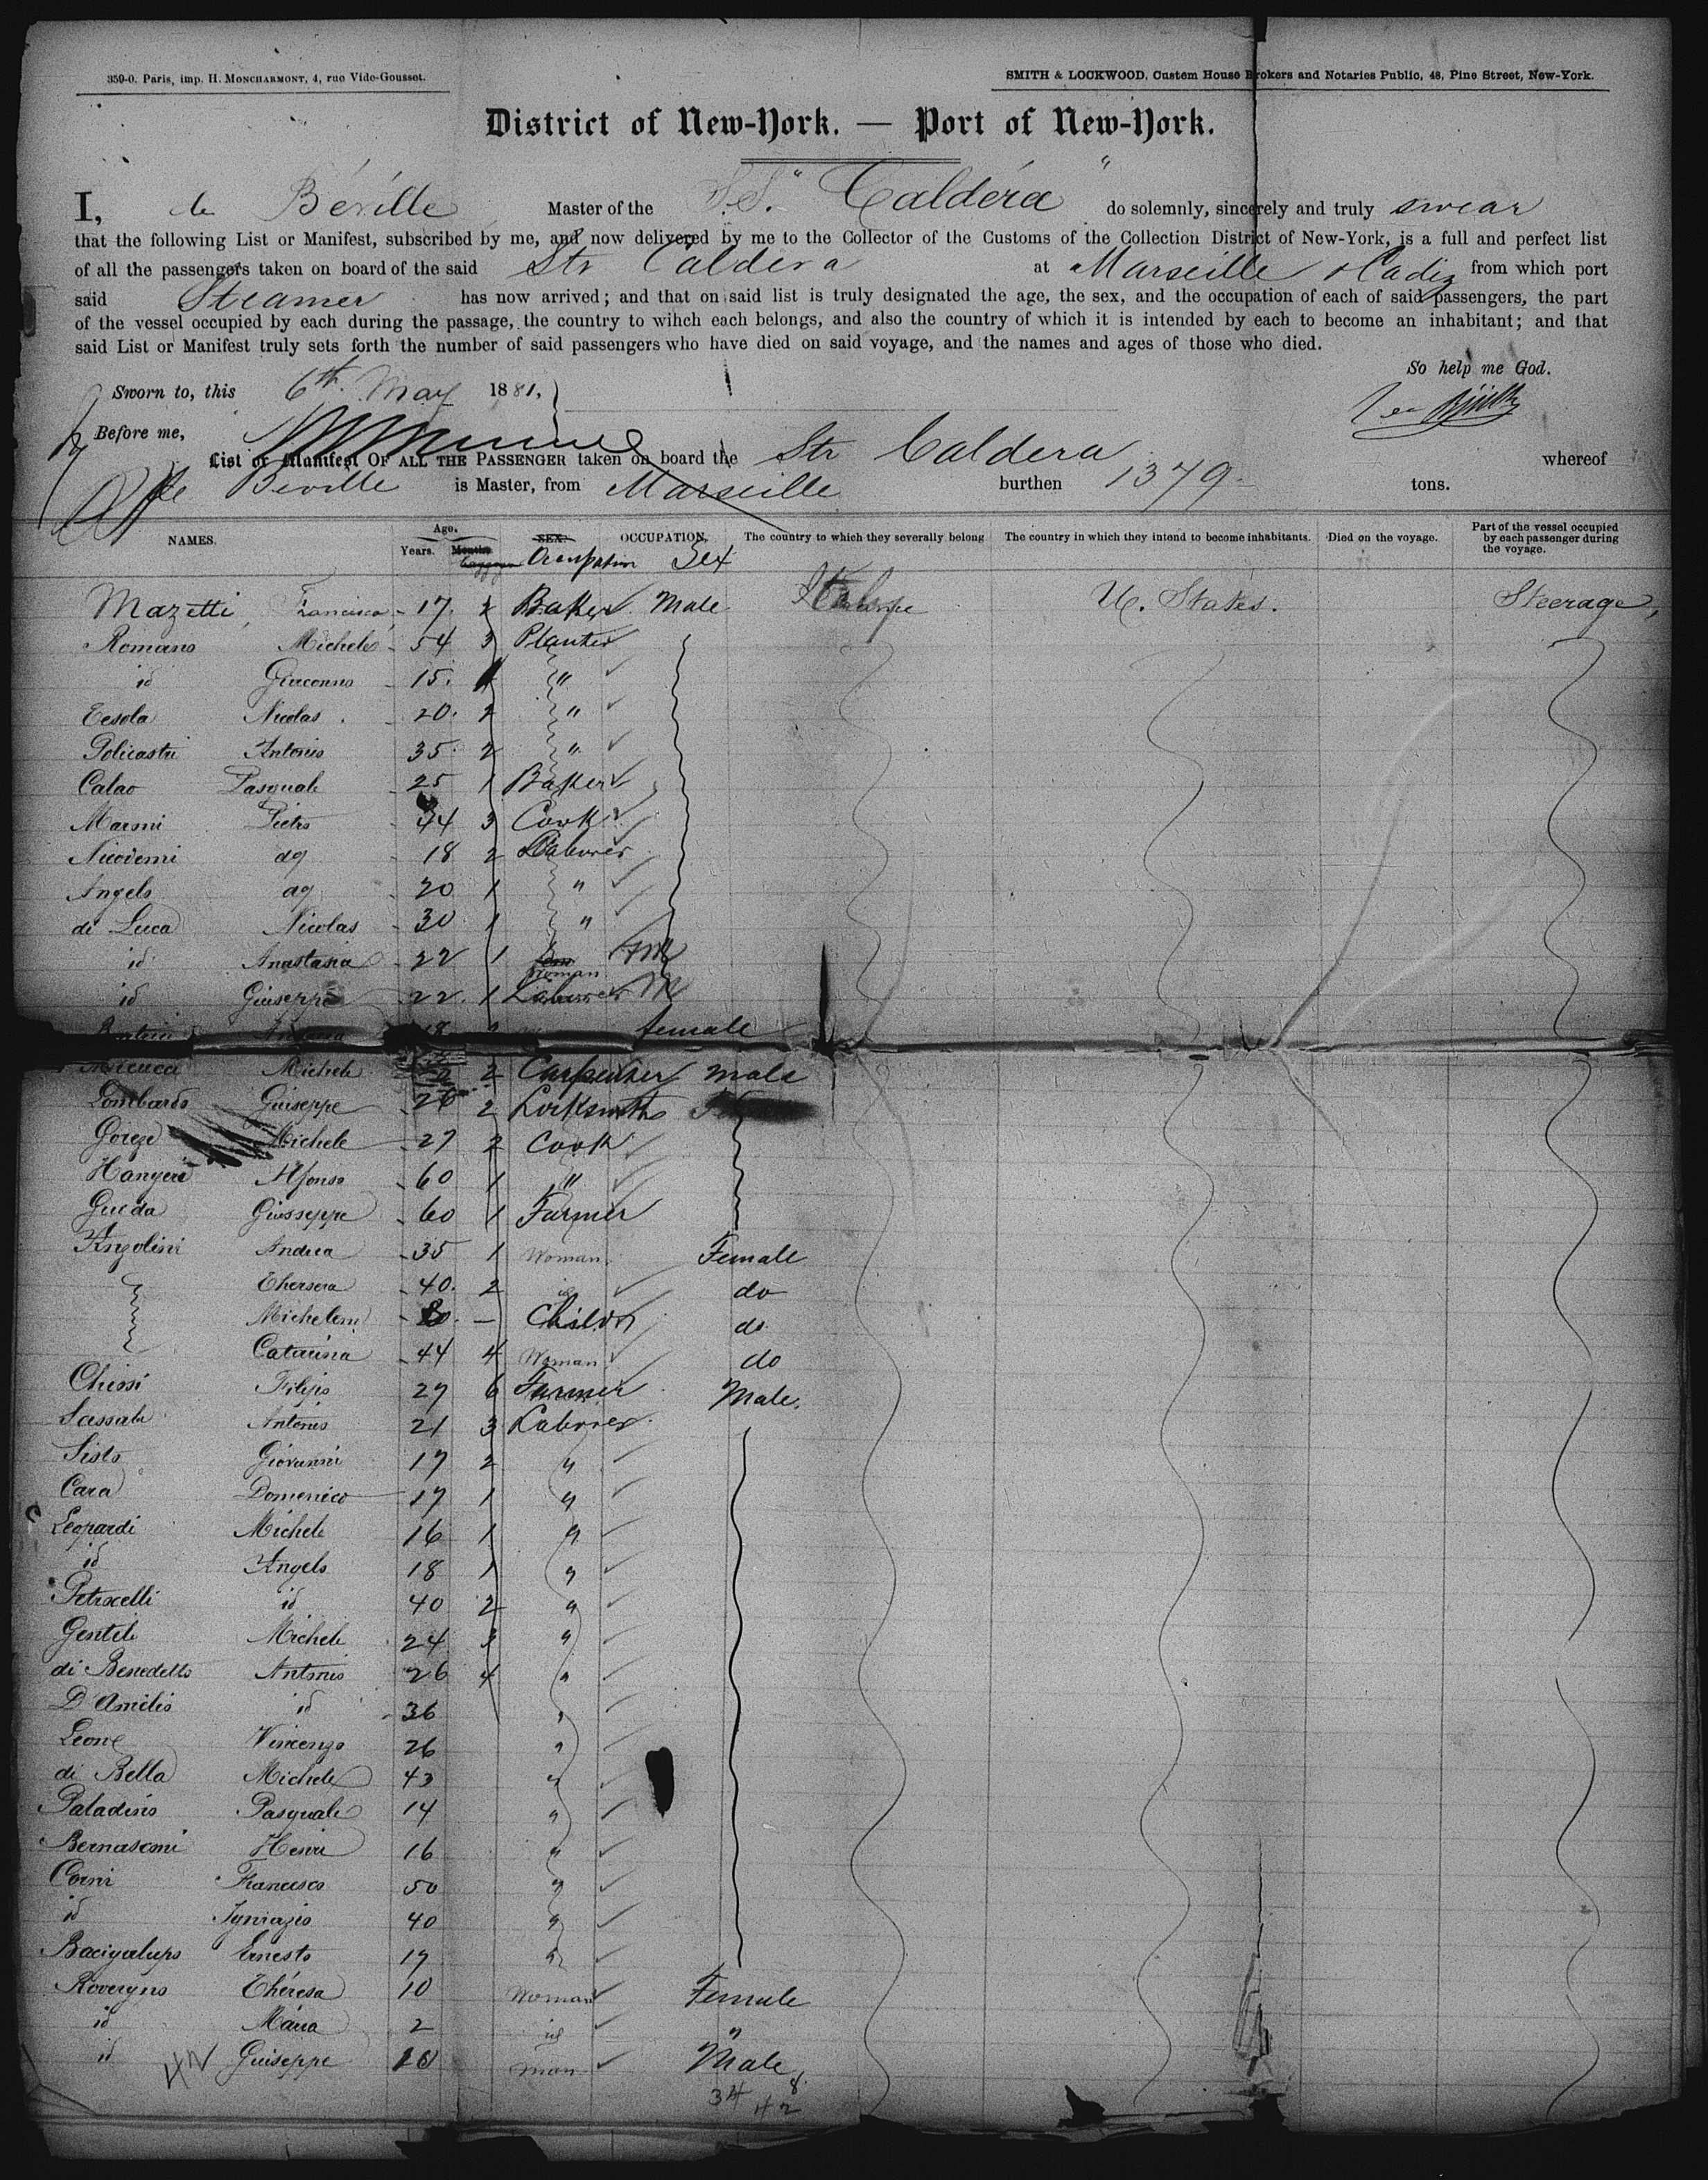 359-0. Paris, imp. H. MONCHARMONT, 4, rue Vide-Gousset.
SMITH & LOCKWOOD, Custom House Brokers and Notaries Public, 48, Pine Street, New-York.
District of New-York. — Port of New-York.
I, de Béville Master of the S.S. "Caldéra" do solemnly, sincerely and truly swear
that the following List or Manifest, subscribed by me, and now delivered by me to the Collector of the Customs of the Collection District of New-York, is a full and perfect list
of all the passengers taken on board of the said Str Caldera at Marseille & Cadiz from which port
said Steamer has now arrived; and that on said list is truly designated the age, the sex, and the occupation of each of said passengers, the part
of the vessel occupied by each during the passage, the country to wihch each belongs, and also the country of which it is intended by each to become an inhabitant; and that
said List or Manifest truly sets forth the number of said passengers who have died on said voyage, and the names and ages of those who died.
So help me God.
Sworn to, this 6th May 1881,
Before me,
List or Manifest OF ALL THE PASSENGER taken on board the Str Caldera whereof
de Beville is Master, from Marseille burthen 1379 tons.
NAMES. Age. Years. Months SEX. OCCUPATION. The country to which they severally belong The country in which they intend to become inhabitants. Died on the voyage. Part of the vessel occupied by each passenger during the voyage.
Occupation Sex
Mazetti Francisco 17 Baker Male U. States. Steerage
Romano Michele 54 3 Planter
id 15 "
Nicolas 20 2 "
Policastri Antonio 35 2 "
Calao Pasquale 25 1 Baker
Maroni Pietro 44 3 Cook
Nicodemi 18 2 Laborer
Angelo 20 1 "
di Luca Nicolas 30 1 "
id Anastasia 22 1 Woman
id Giuseppe 22 1 Laborer M
female
Michele 2 Carpenter Male
Lombardo Giuseppe 26 2 Locksmith
Michele 27 2 Cook
Alfonso 60 1 "
Gueda Giusseppe 60 1 Farmer
Angolini Andrea 35 1 Woman Female
Thersera 40 2 id do
— Child do
Catarina 44 4 Woman do
Chiesi Filipo 27 6 Farmer Male
Antonio 21 3 Laborer
Sisto Giovanni 17 2 "
Cara Domenico 17 1 "
Leopardi Michele 16 1 "
id Angelo 18 1 "
Petrocelli id 40 2 "
Gentile Michele 24 3 "
di Benedetto Antonio 26 4 "
D'Amilio id 36 "
Leone Vincenzo 26 "
di Bella Michele 43 "
Paladino Pasquale 14 "
Bernasconi Henri 16 "
Corni Francesco 50 "
id Igniazio 40 "
Bacigalupo Ernesto 17 "
Rovegno Théresa 10 Woman Female
id Maria 2 id "
id Guiseppe 10 man Male
42
34 8
42